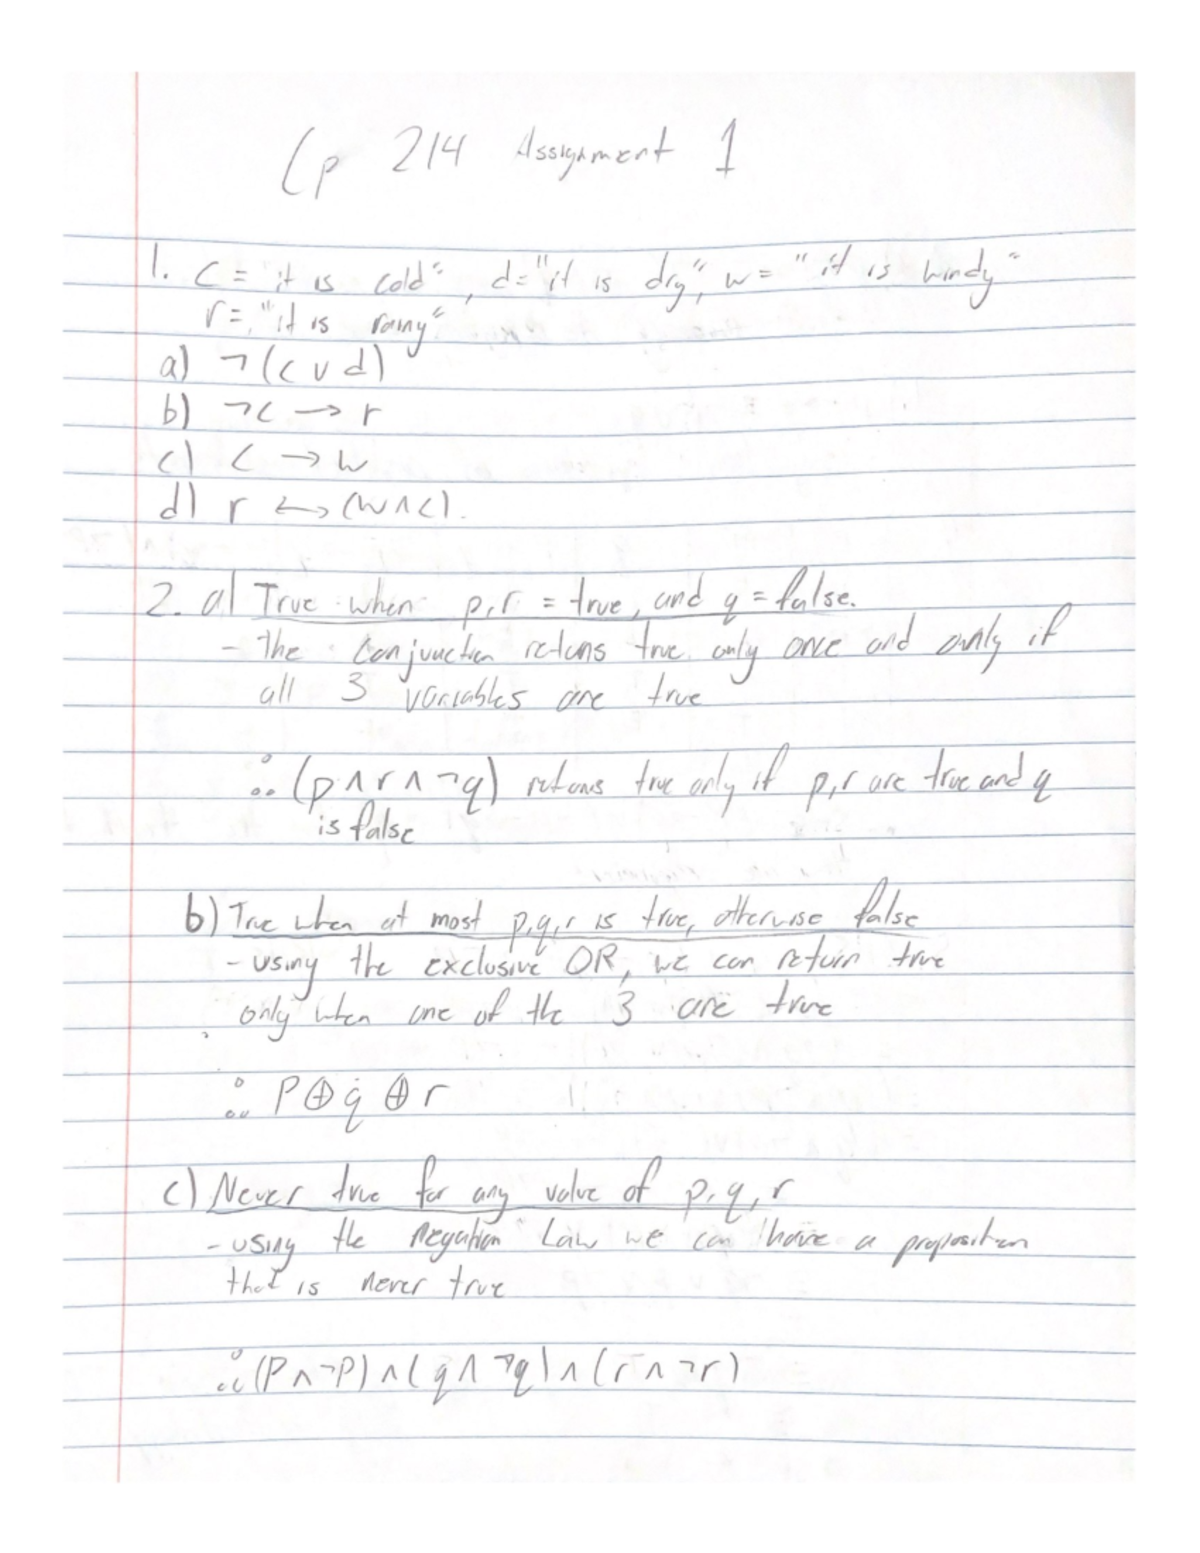 Cp 214 Assignment 1
1. C = "it is cold", d= "it is dry", w = "it is windy"
r = "it is rainy"
a) ¬(c ∨ d)
b) ¬c → r
c) c → w
d) r ↔ (w ∧ c).
2. a) True when p, r = true, and q = false.
- The conjunction returns true only once and only if
all 3 variables are true
∴ (p ∧ r ∧ ¬q) returns true only if p, r are true and q
is false
b) True when at most p, q, r is true, otherwise false
- using the exclusive OR, we can return true
only when one of the 3 are true
∴ P ⊕ q ⊕ r
c) Never true for any value of p, q, r
- using the negation Law we can have a proposition
that is never true
∴ (P ∧ ¬P) ∧ (q ∧ ¬q) ∧ (r ∧ ¬r)